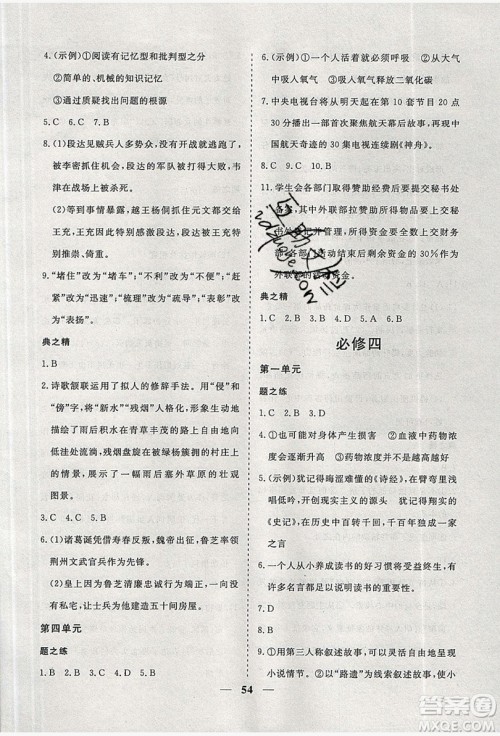 4.(示例)①阅读有记忆型和批判型之分
②简单的、机械的知识记忆
③通过质疑找出问题的根源
5.C 6.C 7.B
8.(1)段达见贼兵人多势众,没有开战就逃跑了,
被李密派兵追赶,段达的军队打得大败,韦
津在战场上被杀死。
(2)等到事情暴露,越王杨侗扣住元文都交给
王充,王充依照礼节辅佐越王杨侗,对王充
更是推崇、倚重。
9.“堵住”改为“堵车”;“不利”改为“不便”;“赶
紧”改为“迅速”;“梳理”改为“疏导”;“表彰”改
为“表扬”。
典之精
1.D 2.B
3.诗歌颔联运用了拟人的修辞手法。用“侵”和
“傍”字,将“新水”“残烟”人格化,生动形象地
描绘了雨后新水在青草丰茂的路上自由地向
低洼处流淌、残烟袅袅在被绿杨簇拥的村庄上
方的图景,展示了一幅雨后塞外草原的美丽
图景。
4.C 5.D 6.C 7.B
8.(1)诸葛诞凭借寿春反叛,魏帝出征,鲁芝率领
荆州文武官兵作为先锋。
(2)皇上因为鲁芝清廉忠诚行为端正,一向没
有私宅,让士兵为他建造五十间房屋。
第四单元
题之练
1.D 2.C 3.C 4.B 5.D
6.(示例)①一个人活着就必须呼吸 ②从大气
中吸入氧气 ③吸入氧气呼出二氧化碳
7.中央电视台将从明天起在第 10 套节目 20 点
30 分播出一部首次聚焦航天幕后故事,反映
中国航天奇迹的 30 集电视连续剧《神舟》。
8.C 9.C 10.B
11.学生会各部门取得赞助经费必须上交秘书处
,其中外联部拉赞助所得物品要上交秘
书
部活动结束后剩余资金的30%作为
外联部
典之精
1.C 2.B 3.B 4.D 5.A 6.B
必修四
第一单元
题之练
1.C 2.B 3.D
4.①也可能对身体产生损害 ②血液中药物浓
度 ③药物浓度并不是越高越好
5.(示例)犹记得晦涩难懂的《诗经》,在臂弯里浅
唱低吟,开创现实主义的源头 犹记得翔实的
《史记》,在历史中悠悠回转,千百年成一家
之言
6.一个人从小养成读书的好习惯将受益终生,有
许多名言都用来说明读书的重要性。
7.D 8.B
9.①用第三人称叙述故事,可以灵活自由地展示
小说情节。②以“路遗”为线索叙述故事,使小
54